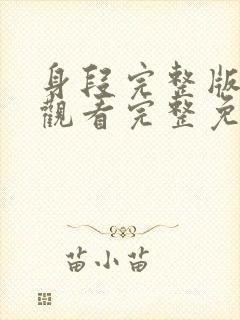 身段完整版
觀看完整免
苗小苗